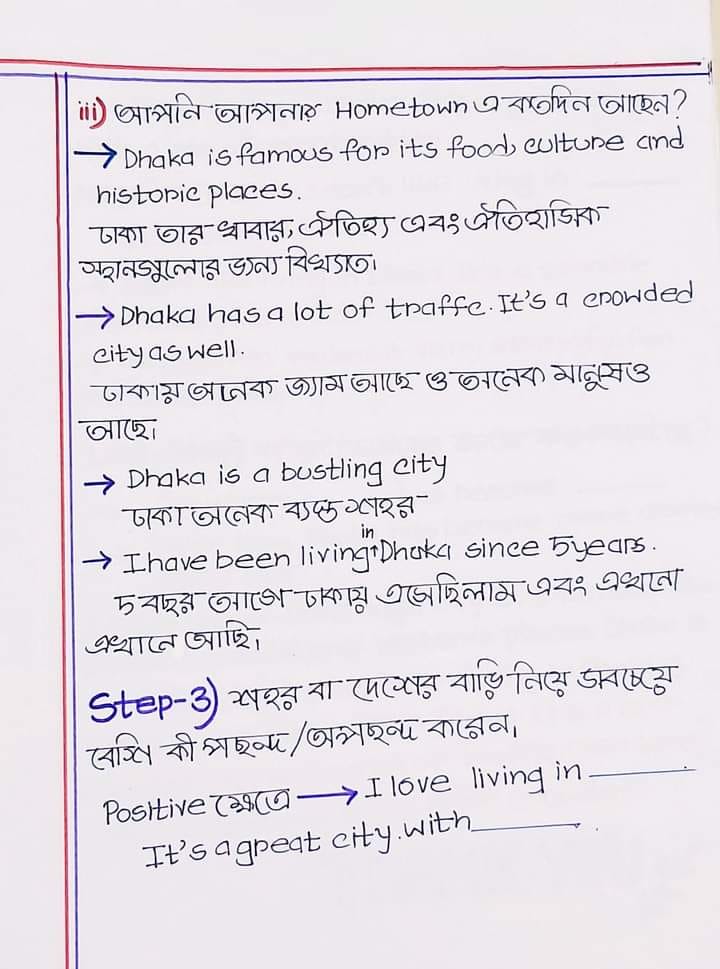 iii) আপনি আপনার Hometown এ কতদিন আছেন?
→ Dhaka is famous for its food, culture and
historic places.
ঢাকা তার খাবার, ঐতিহ্য এবং ঐতিহাসিক
স্থানগুলোর জন্য বিখ্যাত।
→ Dhaka has a lot of traffc. It's a crowded
city as well.
ঢাকায় অনেক জ্যাম আছে ও অনেক মানুষও
আছে।
→ Dhaka is a bustling city
ঢাকা অনেক ব্যস্ত শহর
→ I have been living in Dhaka since 5 years.
৫ বছর আগে ঢাকায় এসেছিলাম এবং এখনো
এখানে আছি।
Step-3) শহর বা দেশের বাড়ি নিয়ে সবচেয়ে
বেশি কী পছন্দ/অপছন্দ করেন।
Positive ক্ষেত্রে → I love living in ______
It's a great city. with ______.